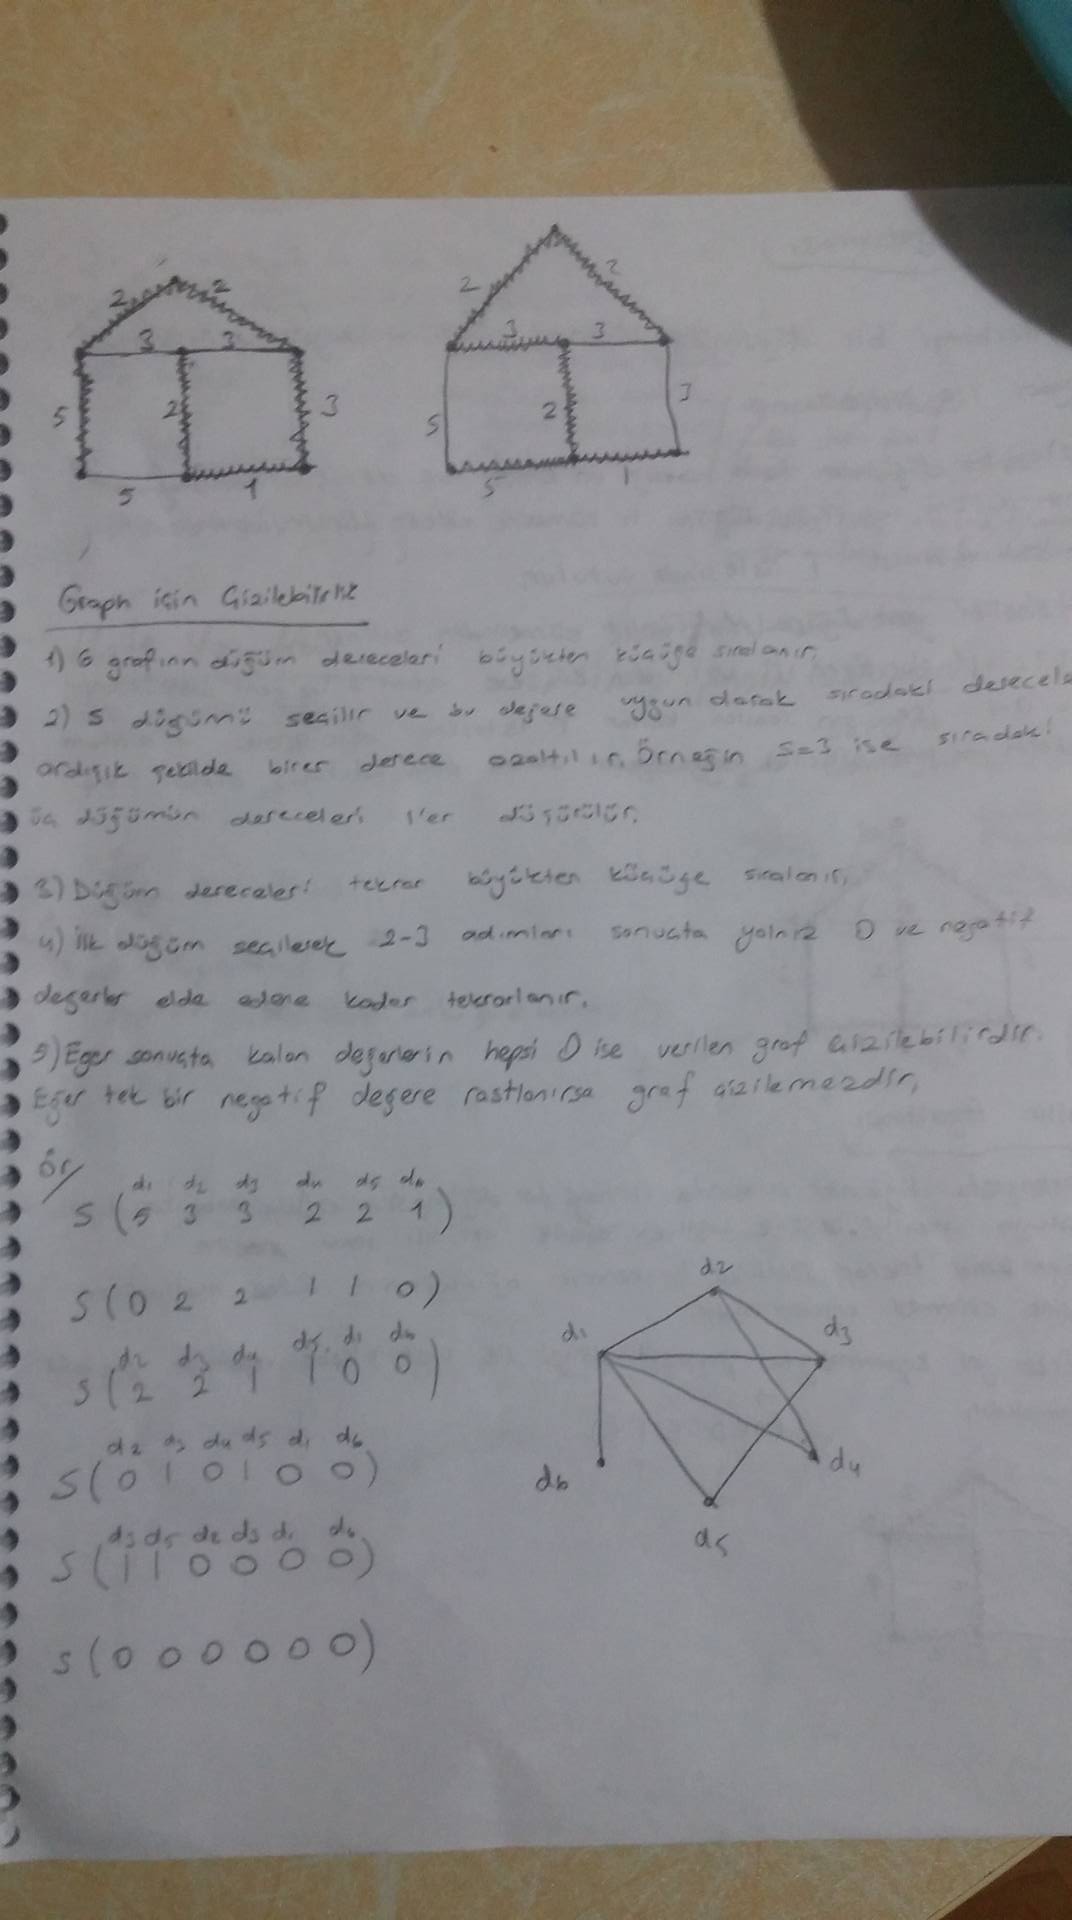 2 2
3 3
5 2 3
5 1
2 2
3 3
5 2 3
5 1
Graph için Çizilebilirlik
1) G grafının düğüm dereceleri büyükten küçüğe sıralanır.
2) S düğümü seçilir ve bu değere uygun olarak sıradaki derecele
ardışık şekilde birer derece azaltılır. Örneğin S=3 ise sıradaki
üç düğümün dereceleri 1'er düşürülür.
3) Düğüm dereceleri tekrar büyükten küçüğe sıralanır.
4) İlk düğüm seçilerek 2-3 adımları sonuçta yalnız 0 ve negatif
değerler elde edene kadar tekrarlanır.
5) Eğer sonuçta kalan değerlerin hepsi 0 ise verilen graf çizilebilirdir.
Eğer tek bir negatif değere rastlanırsa graf çizilemezdir.
Ör/
d1 d2 d3 d4 d5 d6
S (5 3 3 2 2 1)
S (0 2 2 1 1 0)
d2 d3 d4 d5 d1 d6
S (2 2 1 1 0 0)
d2 d3 d4 d5 d1 d6
S (0 1 0 1 0 0)
d3 d5 d2 d3 d1 d6
S (1 1 0 0 0 0)
S (0 0 0 0 0 0)
d2
d1 d3
d6 d4
d5